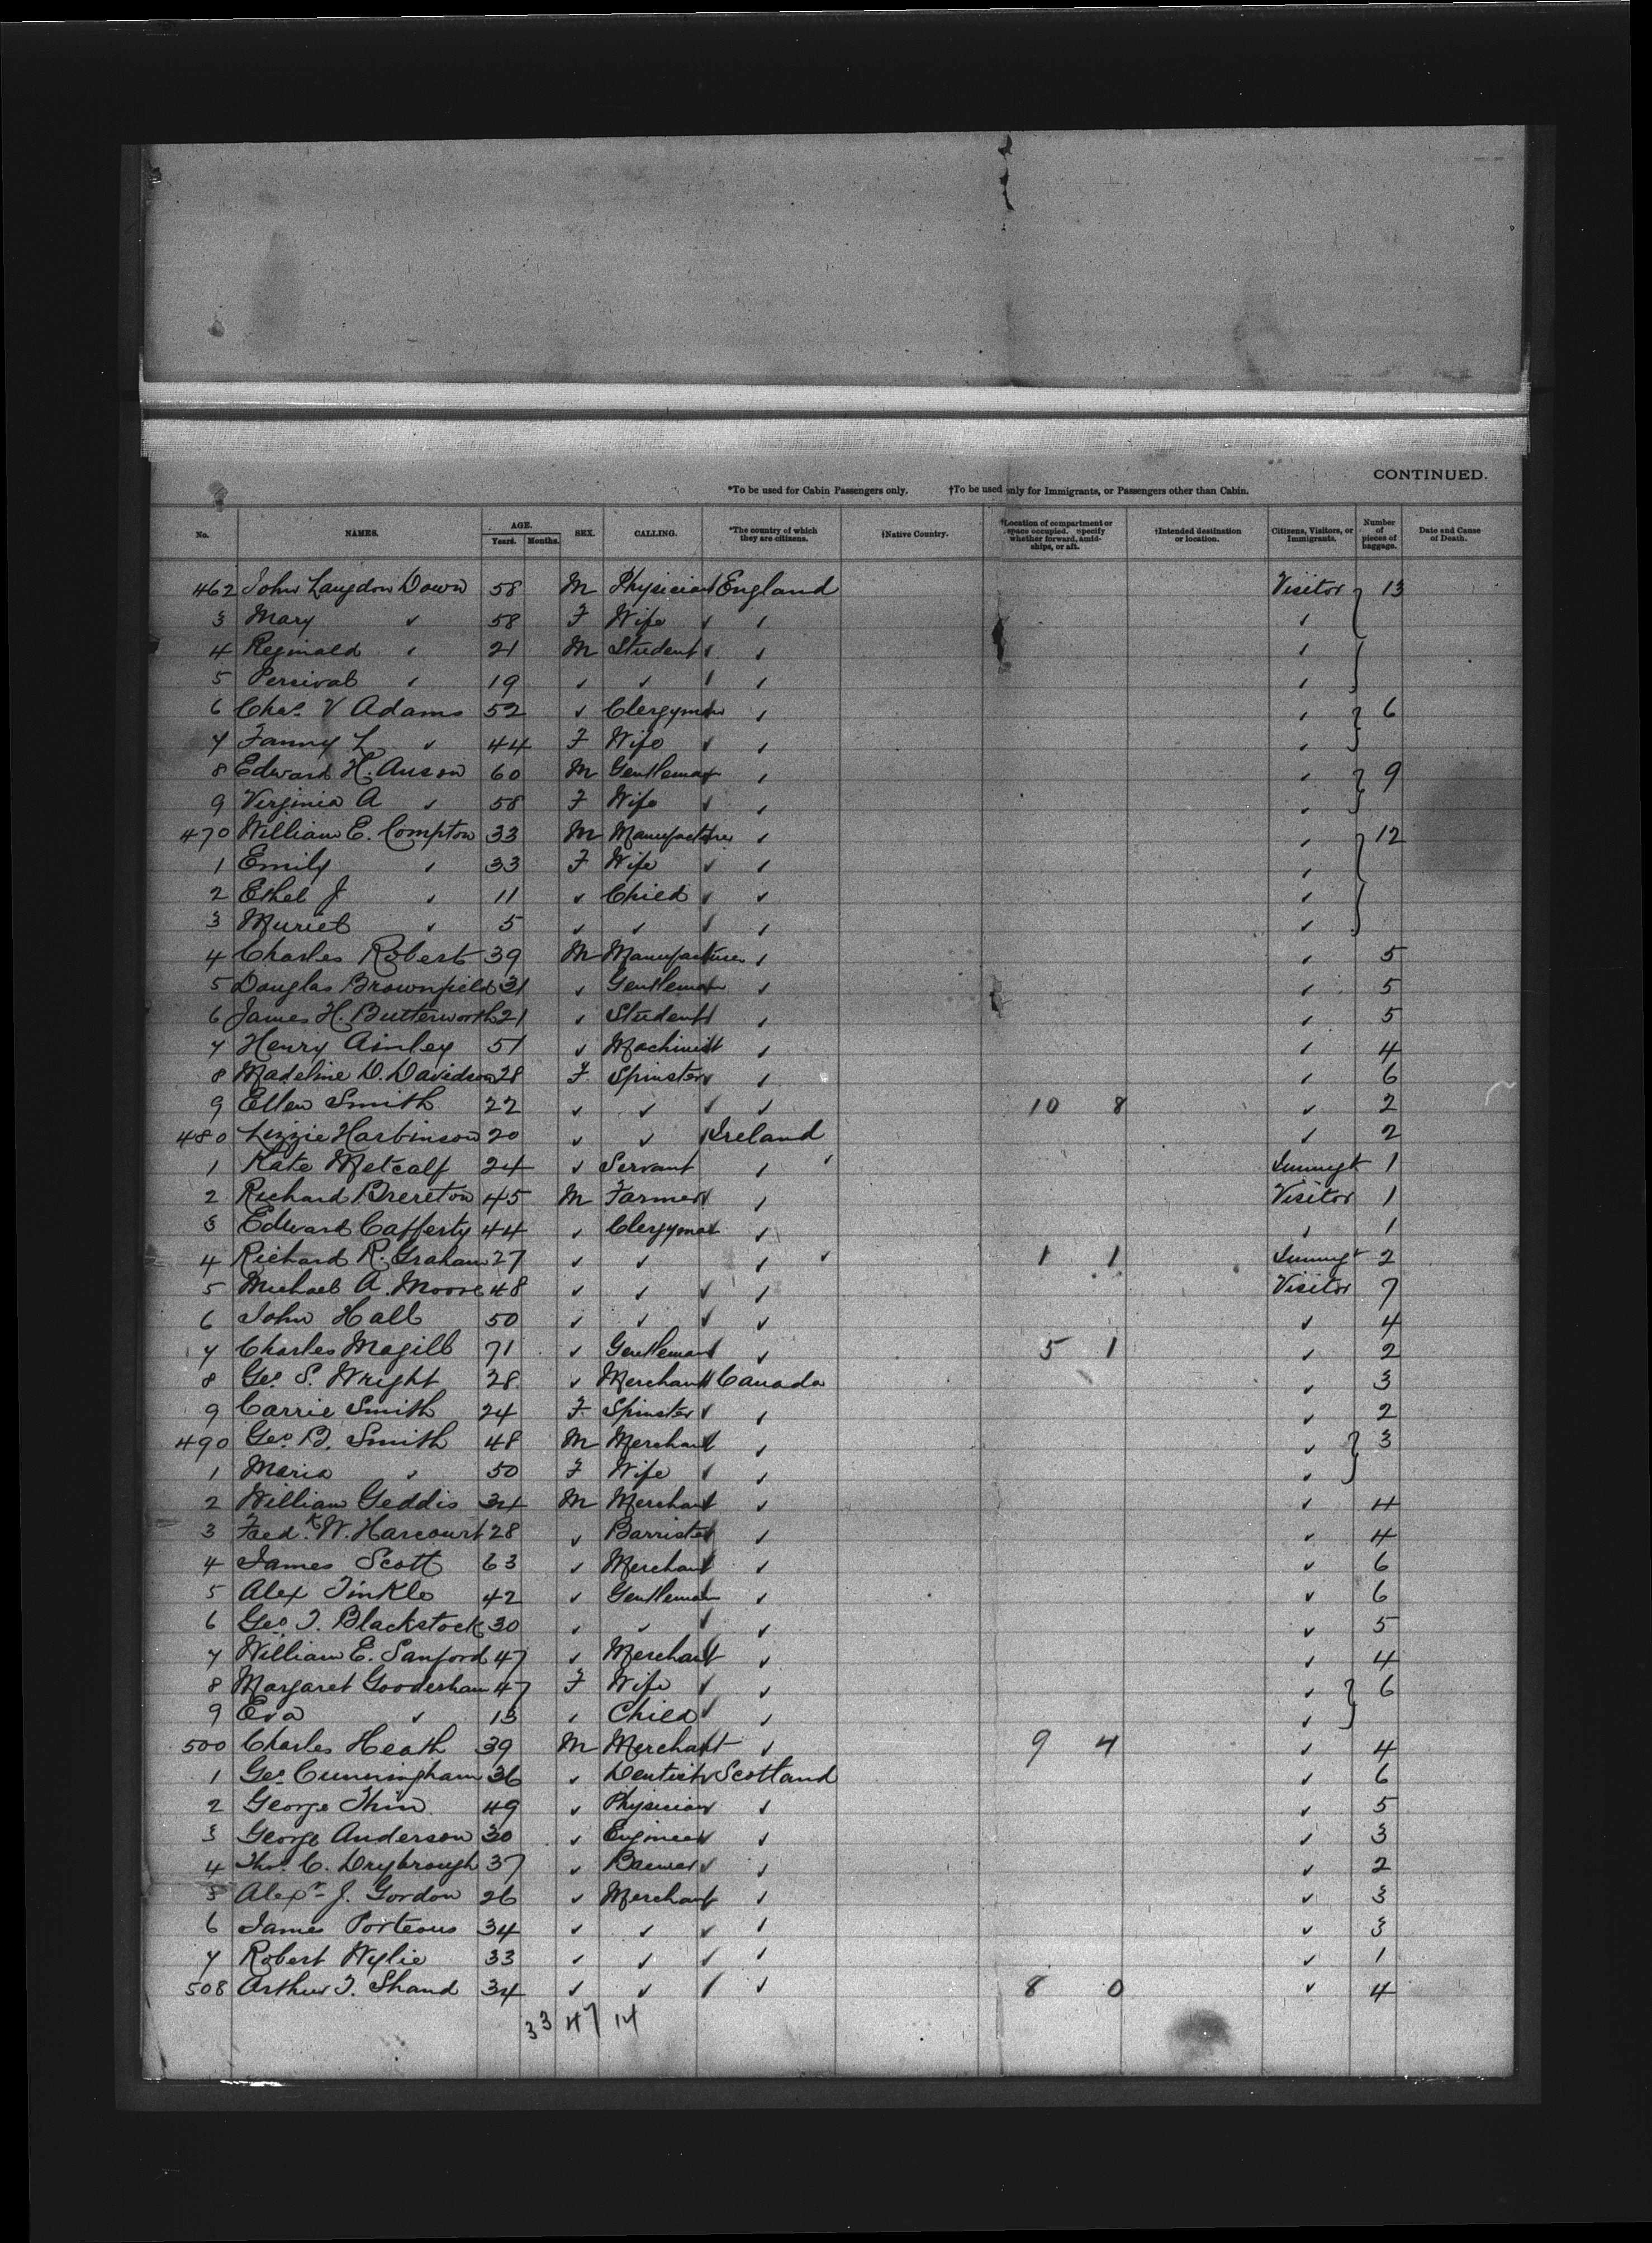 CONTINUED.
*To be used for Cabin Passengers only. †To be used only for Immigrants, or Passengers other than Cabin.
No. NAMES. AGE. Years. Months. SEX. CALLING. *The country of which they are citizens. †Native Country. †Location of compartment or space occupied. Specify whether forward, amidships, or aft. †Intended destination or location. Citizens, Visitors, or Immigrants. Number of pieces of baggage. Date and Cause of Death.
462 John Langdon Down 58 M Physician England Visitor } 13
3 Mary ✓ 58 F Wife ✓ ✓ ✓
4 Reginald ✓ 21 M Student ✓ ✓ ✓ }
5 Percival ✓ 19 ✓ ✓ ✓ ✓ ✓
6 Chas. V Adams 52 ✓ Clergyman ✓ ✓ } 6
7 Fanny L ✓ 44 F Wife ✓ ✓ ✓
8 Edward H. Anson 60 M Gentleman ✓ ✓ } 9
9 Virginia A ✓ 58 F Wife ✓ ✓ ✓
470 William E. Compton 33 M Manufacturer ✓ ✓ } 12
1 Emily ✓ 33 F Wife ✓ ✓ ✓
2 Ethel J ✓ 11 ✓ Child ✓ ✓ ✓
3 Muriel ✓ 5 ✓ ✓ ✓ ✓ ✓
4 Charles Robert 39 M Manufacturer ✓ ✓ 5
5 Douglas Brownfield 31 ✓ Gentleman ✓ ✓ 5
6 James H. Butterworth 21 ✓ Student ✓ ✓ 5
7 Henry Ainley 51 ✓ Machinist ✓ ✓ 4
8 Madeline D. Davidson 28 F. Spinster ✓ ✓ ✓ 6
9 Ellen Smith 22 ✓ ✓ ✓ ✓ 10 8 ✓ 2
480 Lizzie Harbinson 20 ✓ ✓ Ireland ✓ 2
1 Kate Metcalf 24 ✓ Servant ✓ ✓ Immigt 1
2 Richard Brereton 45 M Farmer ✓ ✓ Visitor 1
3 Edward Cafferty 44 ✓ Clergyman ✓ ✓ 1
4 Richard R. Graham 27 ✓ ✓ ✓ ✓ 1 1 Immigt 2
5 Michael A. Moore 48 ✓ ✓ ✓ ✓ Visitor 7
6 John Hall 50 ✓ ✓ ✓ ✓ ✓ 4
7 Charles Magill 71 ✓ Gentleman ✓ 5 1 ✓ 2
8 Geo. S. Wright 28 ✓ Merchant Canada ✓ 3
9 Carrie Smith 24 F. Spinster ✓ ✓ ✓ 2
490 Geo. B. Smith 48 M Merchant ✓ ✓ } 3
1 Maria ✓ 50 F Wife ✓ ✓ ✓
2 William Geddis 34 M Merchant ✓ ✓ 4
3 Fredk. W. Harcourt 28 ✓ Barrister ✓ ✓ 4
4 James Scott 63 ✓ Merchant ✓ ✓ 6
5 Alex Tinkle 42 ✓ Gentleman ✓ ✓ 6
6 Geo. T. Blackstock 30 ✓ ✓ ✓ ✓ ✓ 5
7 William E. Sanford 47 ✓ Merchant ✓ ✓ 4
8 Margaret Gooderham 47 F Wife ✓ ✓ ✓ } 6
9 Eva ✓ 13 ✓ Child ✓ ✓ ✓
500 Charles Heath 39 M Merchant ✓ 9 4 ✓ 4
1 Geo. Cunningham 36 ✓ Dentist ✓ Scotland ✓ 6
2 George Thin 49 ✓ Physician ✓ ✓ 5
3 George Anderson 30 ✓ Engineer ✓ ✓ 3
4 Thos. C. Drybrough 37 ✓ Brewer ✓ ✓ ✓ 2
5 Alexr. J. Gordon 26 ✓ Merchant ✓ ✓ 3
6 James Porteous 34 ✓ ✓ ✓ ✓ ✓ 3
7 Robert Wylie 33 ✓ ✓ ✓ ✓ ✓ 1
508 Arthur T. Shand 34 ✓ ✓ ✓ ✓ 8 0 ✓ 4
33 47 14